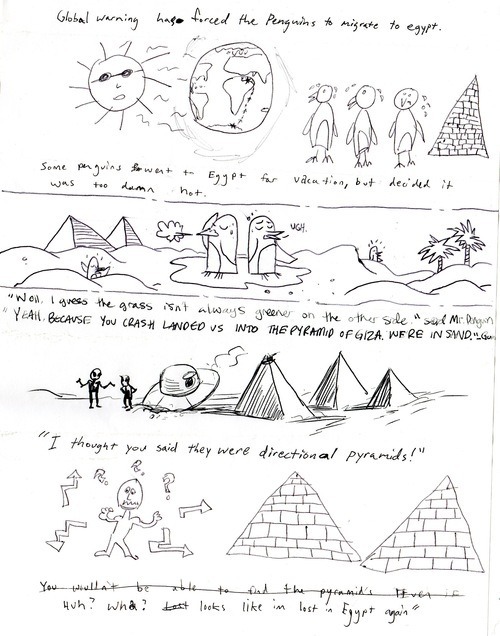 Global warning has forced the Penguins to migrate to egypt.
Some penguins went to Egypt for vacation, but decided it
was too damn hot.
UGH.
"Well, I guess the grass isn't always greener on the other side." said Mr. Penguin
"YEAH, BECAUSE YOU CRASH LANDED US INTO THE PYRAMID OF GIZA. WE'RE IN SAND."
"I thought you said they were directional pyramids!"
? ? ?
You wouldn't be able to find the pyramid's
Huh? Wha? Lost looks like im lost in Egypt again"